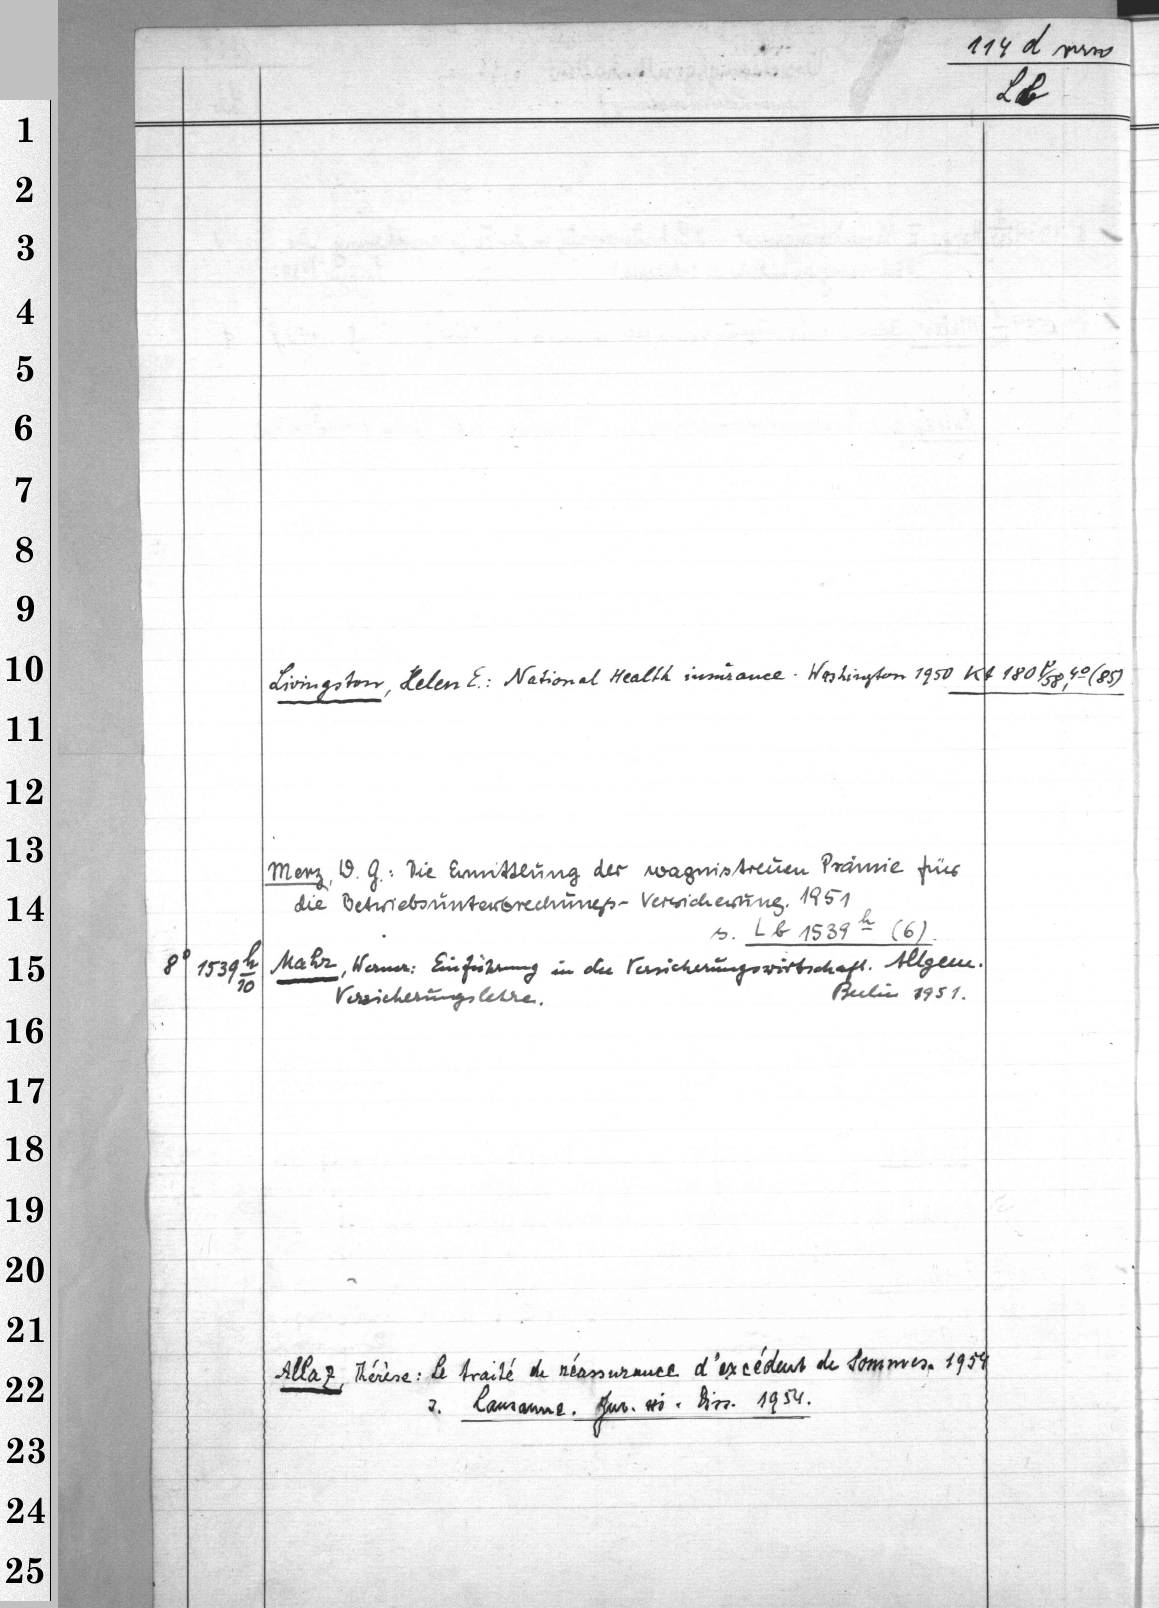 114 d verso
Lb
1
2
3
4
5
6
7
8
9
10
Livingston, Helen E.: National Health insurance. Washington 1950 Kt 180 r/58, 4° (85)
11
12
13
Merz, W. G.: Die Ermittlung der wagnistreuen Prämie für
14
die Betriebsunterbrechungs-Versicherung. 1951
s. Lb 1539 h (6).
15
8° 1539 h/10 Mahr, Werner: Einführung in die Versicherungswirtschaft. Allgem.
Versicherungslehre. Berlin 1951.
16
17
18
19
20
21
Allaz, Thérèse: Le traité de réassurance d'excédent de sommes. 1954
22
s. Lausanne. Jur. Diss. 1954.
23
24
25